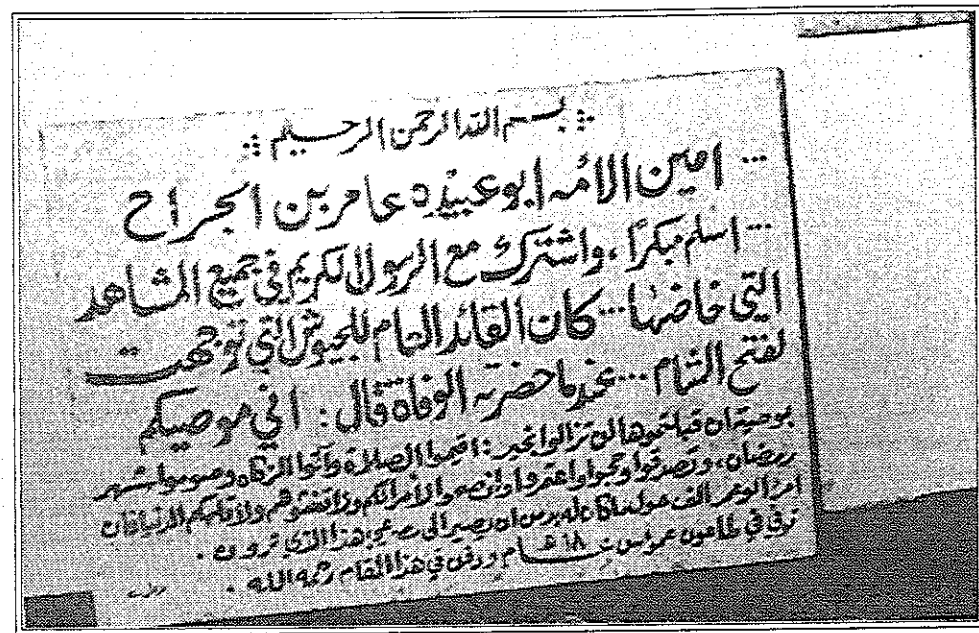 بسم الله الرحمن الرحيم
... امين الامه ابو عبيده عامر بن الجراح
... اسلم مبكرًا ، واشترك مع الرسول الكريم في جميع المشاهد
التي خاضها ... كان القائد العام للجيوش التي توجهت
لفتح الشام ... عندما حضرته الوفاة قال : اني موصيكم
بوصية ان قبلتموها لن تزالوا بخير : اقيموا الصلاة وآتوا الزكاه وصوموا شهر
رمضان ، وتصدقوا وحجوا واعتمروا وانصحوا لأمرائكم ولا تغشوهم ولا تلهكم الدنيا فان
امرًا لو عمر الف حول ما كان له بد من ان يصير الى مصرعي هذا الذي ترون .
توفي في طاعون عمواس عام ١٨ هـ ودفن في هذا المقام رحمه الله .